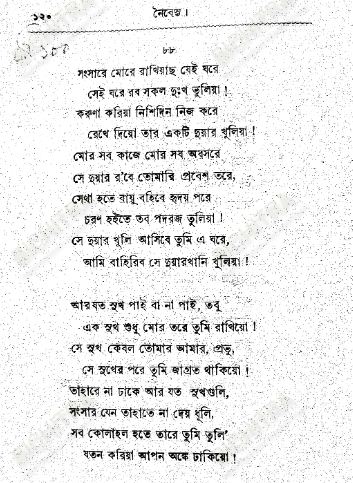 ১২০
নৈবেদ্য।
৮৮
সংসারে মোরে রাখিয়াছ যেই ঘরে
সেই ঘরে রব সকল দুঃখ ভুলিয়া !
করুণা করিয়া নিশিদিন নিজ করে
রেখে দিয়ো তার একটি দুয়ার খুলিয়া !
মোর সব কাজে মোর সব অবসরে
সে দুয়ার র’বে তোমারি প্রবেশ তরে,
সেথা হতে বায়ু বহিবে হৃদয় পরে
চরণ হইতে তব পদরজ তুলিয়া !
সে দুয়ার খুলি আসিবে তুমি এ ঘরে,
আমি বাহিরিব সে দুয়ারখানি খুলিয়া !
আরযত সুখ পাই বা না পাই, তবু
এক সুখ শুধু মোর তরে তুমি রাখিয়ো !
সে সুখ কেবল তোমার আমার, প্রভু,
সে সুখের পরে তুমি জাগ্রত থাকিয়ো !
তাহারে না ঢাকে আর যত সুখগুলি,
সংসার যেন তাহাতে না দেয় ধূলি,
সব কোলাহল হতে তারে তুমি তুলি’
যতন করিয়া আপন অঙ্কে ঢাকিয়ো !